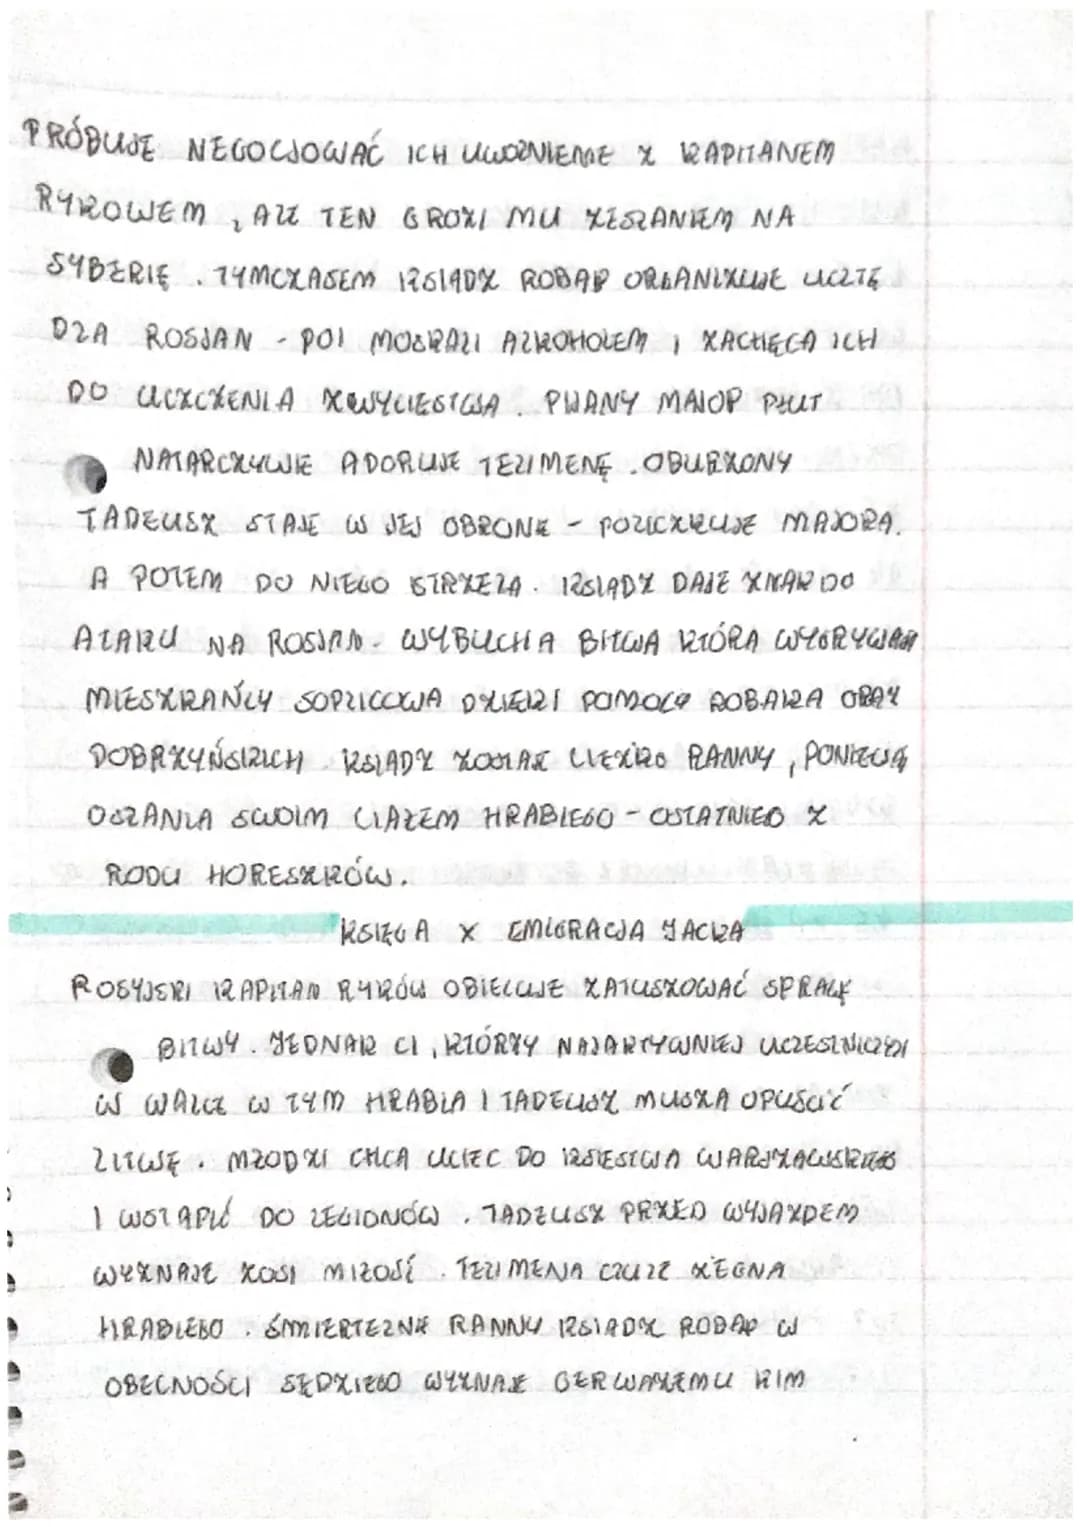 PRÓBUJE NEGOCJOWAĆ ICH UWOLNIENIE Z KAPITANEM
RYKOWEM, ALE TEN GROZI MU ZESŁANIEM NA
SYBERIĘ. TYMCZASEM KSIĄDZ ROBAK ORGANIZUJE UCZTĘ
DLA ROSJAN - POI MOSKALI ALKOHOLEM I ZACHĘCA ICH
DO UCZCZENIA ZWYCIĘSTWA. PIJANY MAJOR PŁUT
NATARCZYWIE ADORUJE TELIMENĘ. OBURZONY
TADEUSZ STAJE W JEJ OBRONE - POLICZKUJE MAJORA.
A POTEM DO NIEGO STRZELA. KSIĄDZ DAJE ZNAK DO
ATAKU NA ROSJAN. WYBUCHA BITWA KTÓRA WYGRYWAJĄ
MIESZKAŃCY SOPLICOWA DZIĘKI POMOCY ROBAKA ORAZ
DOBRZYŃSKICH. KSIĄDZ ZOSTAŁ CIĘŻKO RANNY, PONIEWAŻ
OSŁANIA SWOIM CIAŁEM HRABIEGO - OSTATNIEGO Z
RODU HORESZKÓW.
KSIĘGA X EMIGRACJA JACKA
ROSYJSKI KAPITAN RYKÓW OBIECUJE ZATUSZOWAĆ SPRAWĘ
BITWY. JEDNAK CI, KTÓRZY NAJAKTYWNIEJ UCZESTNICZYLI
W WALCE W TYM HRABIA I TADEUSZ MUSZĄ OPUŚCIĆ
LITWĘ. MŁODZI CHCA UCIEC DO KSIĘSTWA WARSZAWSKIEGO
I WSTĄPIĆ DO LEGIONÓW. TADEUSZ PRZED WYJAZDEM
WYZNAJE ZOSI MIŁOŚĆ. TELIMENA CZULE ŻEGNA
HRABIEGO. ŚMIERTELNIE RANNY KSIĄDZ ROBAK W
OBECNOŚCI SĘDZIEGO WYZNAJE GERWAZEMU KIM